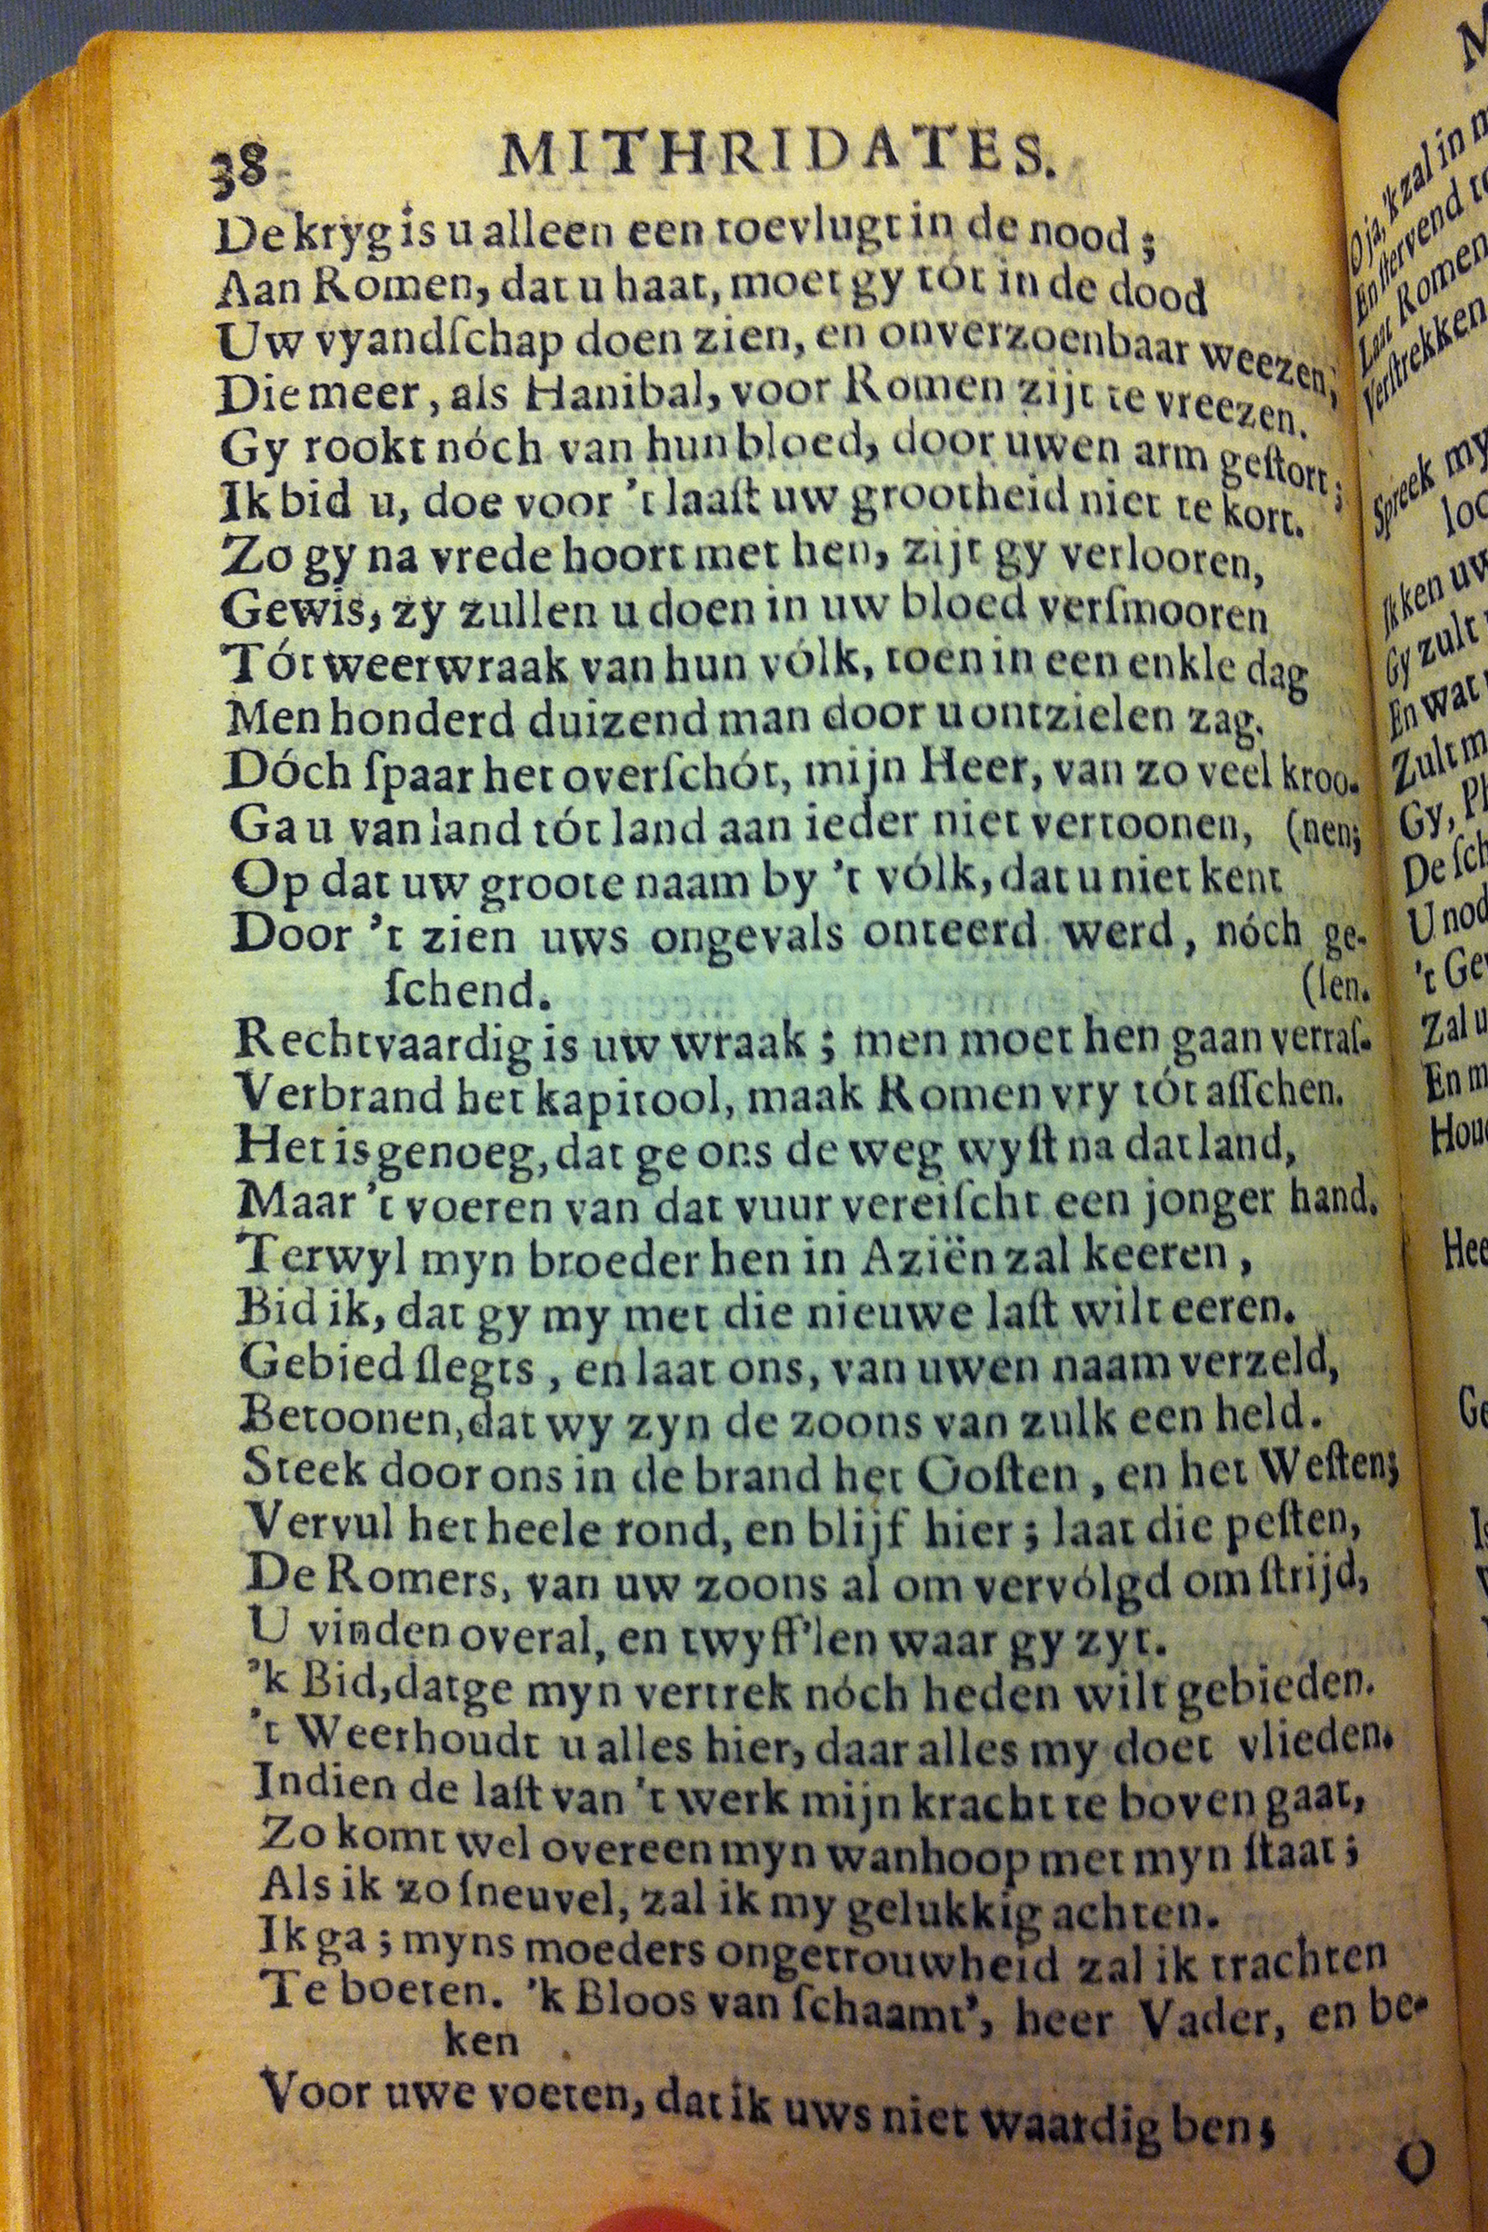 38 MITHRIDATES.
De kryg is u alleen een toevlugt in de nood;
Aan Romen, dat u haat, moet gy tót in de dood
Uw vyandſchap doen zien, en onverzoenbaar weezen;
Die meer, als Hanibal, voor Romen zijt te vreezen.
Gy rookt nóch van hun bloed, door uwen arm geſtort;
Ik bid u, doe voor 't laaſt uw grootheid niet te kort.
Zo gy na vrede hoort met hen, zijt gy verlooren,
Gewis, zy zullen u doen in uw bloed verſmooren
Tót weerwraak van hun vólk, toen in een enkle dag
Men honderd duizend man door u ontzielen zag.
Dóch ſpaar het overſchót, mijn Heer, van zo veel kroo-
Ga u van land tót land aan ieder niet vertoonen, (nen;
Op dat uw groote naam by 't vólk, dat u niet kent
Door 't zien uws ongevals onteerd werd, nóch ge-
ſchend. (ſen.
Rechtvaardig is uw wraak; men moet hen gaan verraſ-
Verbrand het kapitool, maak Romen vry tót aſſchen.
Het is genoeg, dat ge ons de weg wyſt na dat land,
Maar 't voeren van dat vuur vereiſcht een jonger hand.
Terwyl myn broeder hen in Aziën zal keeren,
Bid ik, dat gy my met die nieuwe laſt wilt eeren.
Gebied ſlegts, en laat ons, van uwen naam verzeld,
Betoonen, dat wy zyn de zoons van zulk een held.
Steek door ons in de brand het Ooſten, en het Weſten;
Vervul het heele rond, en blijf hier; laat die peſten,
De Romers, van uw zoons al om vervólgd om ſtrijd,
U vinden overal, en twyff'len waar gy zyt.
'k Bid, dat ge myn vertrek nóch heden wilt gebieden.
't Weerhoudt u alles hier, daar alles my doet vlieden.
Indien de laſt van 't werk mijn kracht te boven gaat,
Zo komt wel overeen myn wanhoop met myn ſtaat;
Als ik zo ſneuvel, zal ik my gelukkig achten.
Ik ga; myns moeders ongetrouwheid zal ik trachten
Te boeten. 'k Bloos van ſchaamt', heer Vader, en be-
ken
Voor uwe voeten, dat ik uws niet waardig ben;
O
O ja, 'k zal in
En ſtervend
Laat Romen
Verſtrekken
Spreek my
Ik ken
Gy zult
En wat
Zult
Gy,